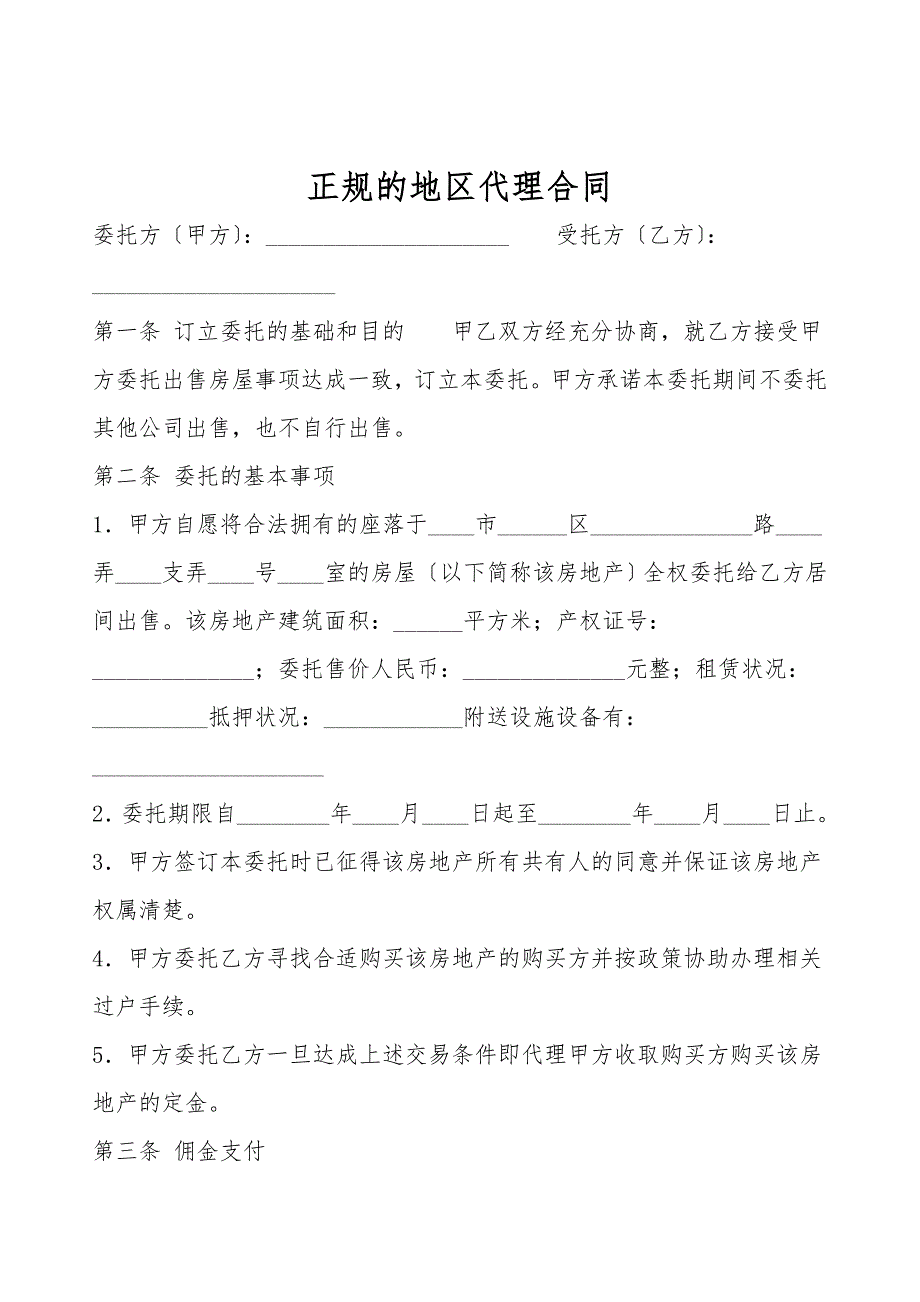 正规的地区代理合同
委托方〔甲方〕：_____________________　　受托方〔乙方〕：
_____________________
第一条 订立委托的基础和目的　　甲乙双方经充分协商，就乙方接受甲
方委托出售房屋事项达成一致，订立本委托。甲方承诺本委托期间不委托
其他公司出售，也不自行出售。
第二条 委托的基本事项
1．甲方自愿将合法拥有的座落于____市______区______________路____
弄____支弄____号____室的房屋〔以下简称该房地产〕全权委托给乙方居
间出售。该房地产建筑面积：______平方米；产权证号：
______________；委托售价人民币：______________元整；租赁状况：
__________抵押状况：____________附送设施设备有：
____________________
2．委托期限自________年____月____日起至________年____月____日止。
3．甲方签订本委托时已征得该房地产所有共有人的同意并保证该房地产
权属清楚。
4．甲方委托乙方寻找合适购买该房地产的购买方并按政策协助办理相关
过户手续。
5．甲方委托乙方一旦达成上述交易条件即代理甲方收取购买方购买该房
地产的定金。
第三条 佣金支付